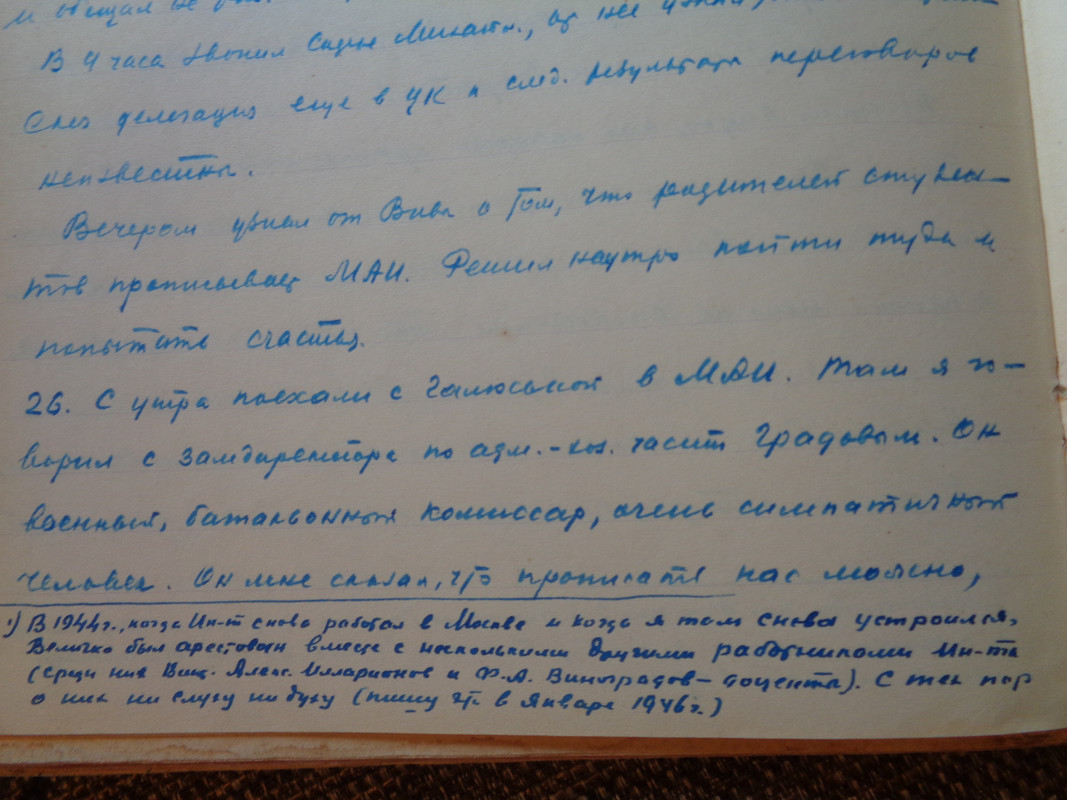 и обещал не
В 4 часа звонил Сидне Михайл., от нее узнал,
делегация еще в ЦК и след. результаты переговоров
неизвестны.
Вечером узнал от Вивы о том, что родителей студен-
тов прописывает МАИ. Решил наутро пойти туда и
попытать счастья.
26. С утра поехали с Галюськой в МАИ. Там я го-
ворил с замдиректора по адм.-хоз. части Градовым. Он
военный, батальонный комиссар, очень симпатичный
человек. Он мне сказал, что прописать нас можно,
1) В 1944 г., когда Ин-т снова работал в Москве и когда я там снова устроился,
Величко был арестован вместе с несколькими другими работниками Ин-та
(среди них Вищ. Алекс. Илларионов и Ф.А. Виноградов - доценты). С тех пор
о них ни слуху ни духу (пишу это в Январе 1946 г.)